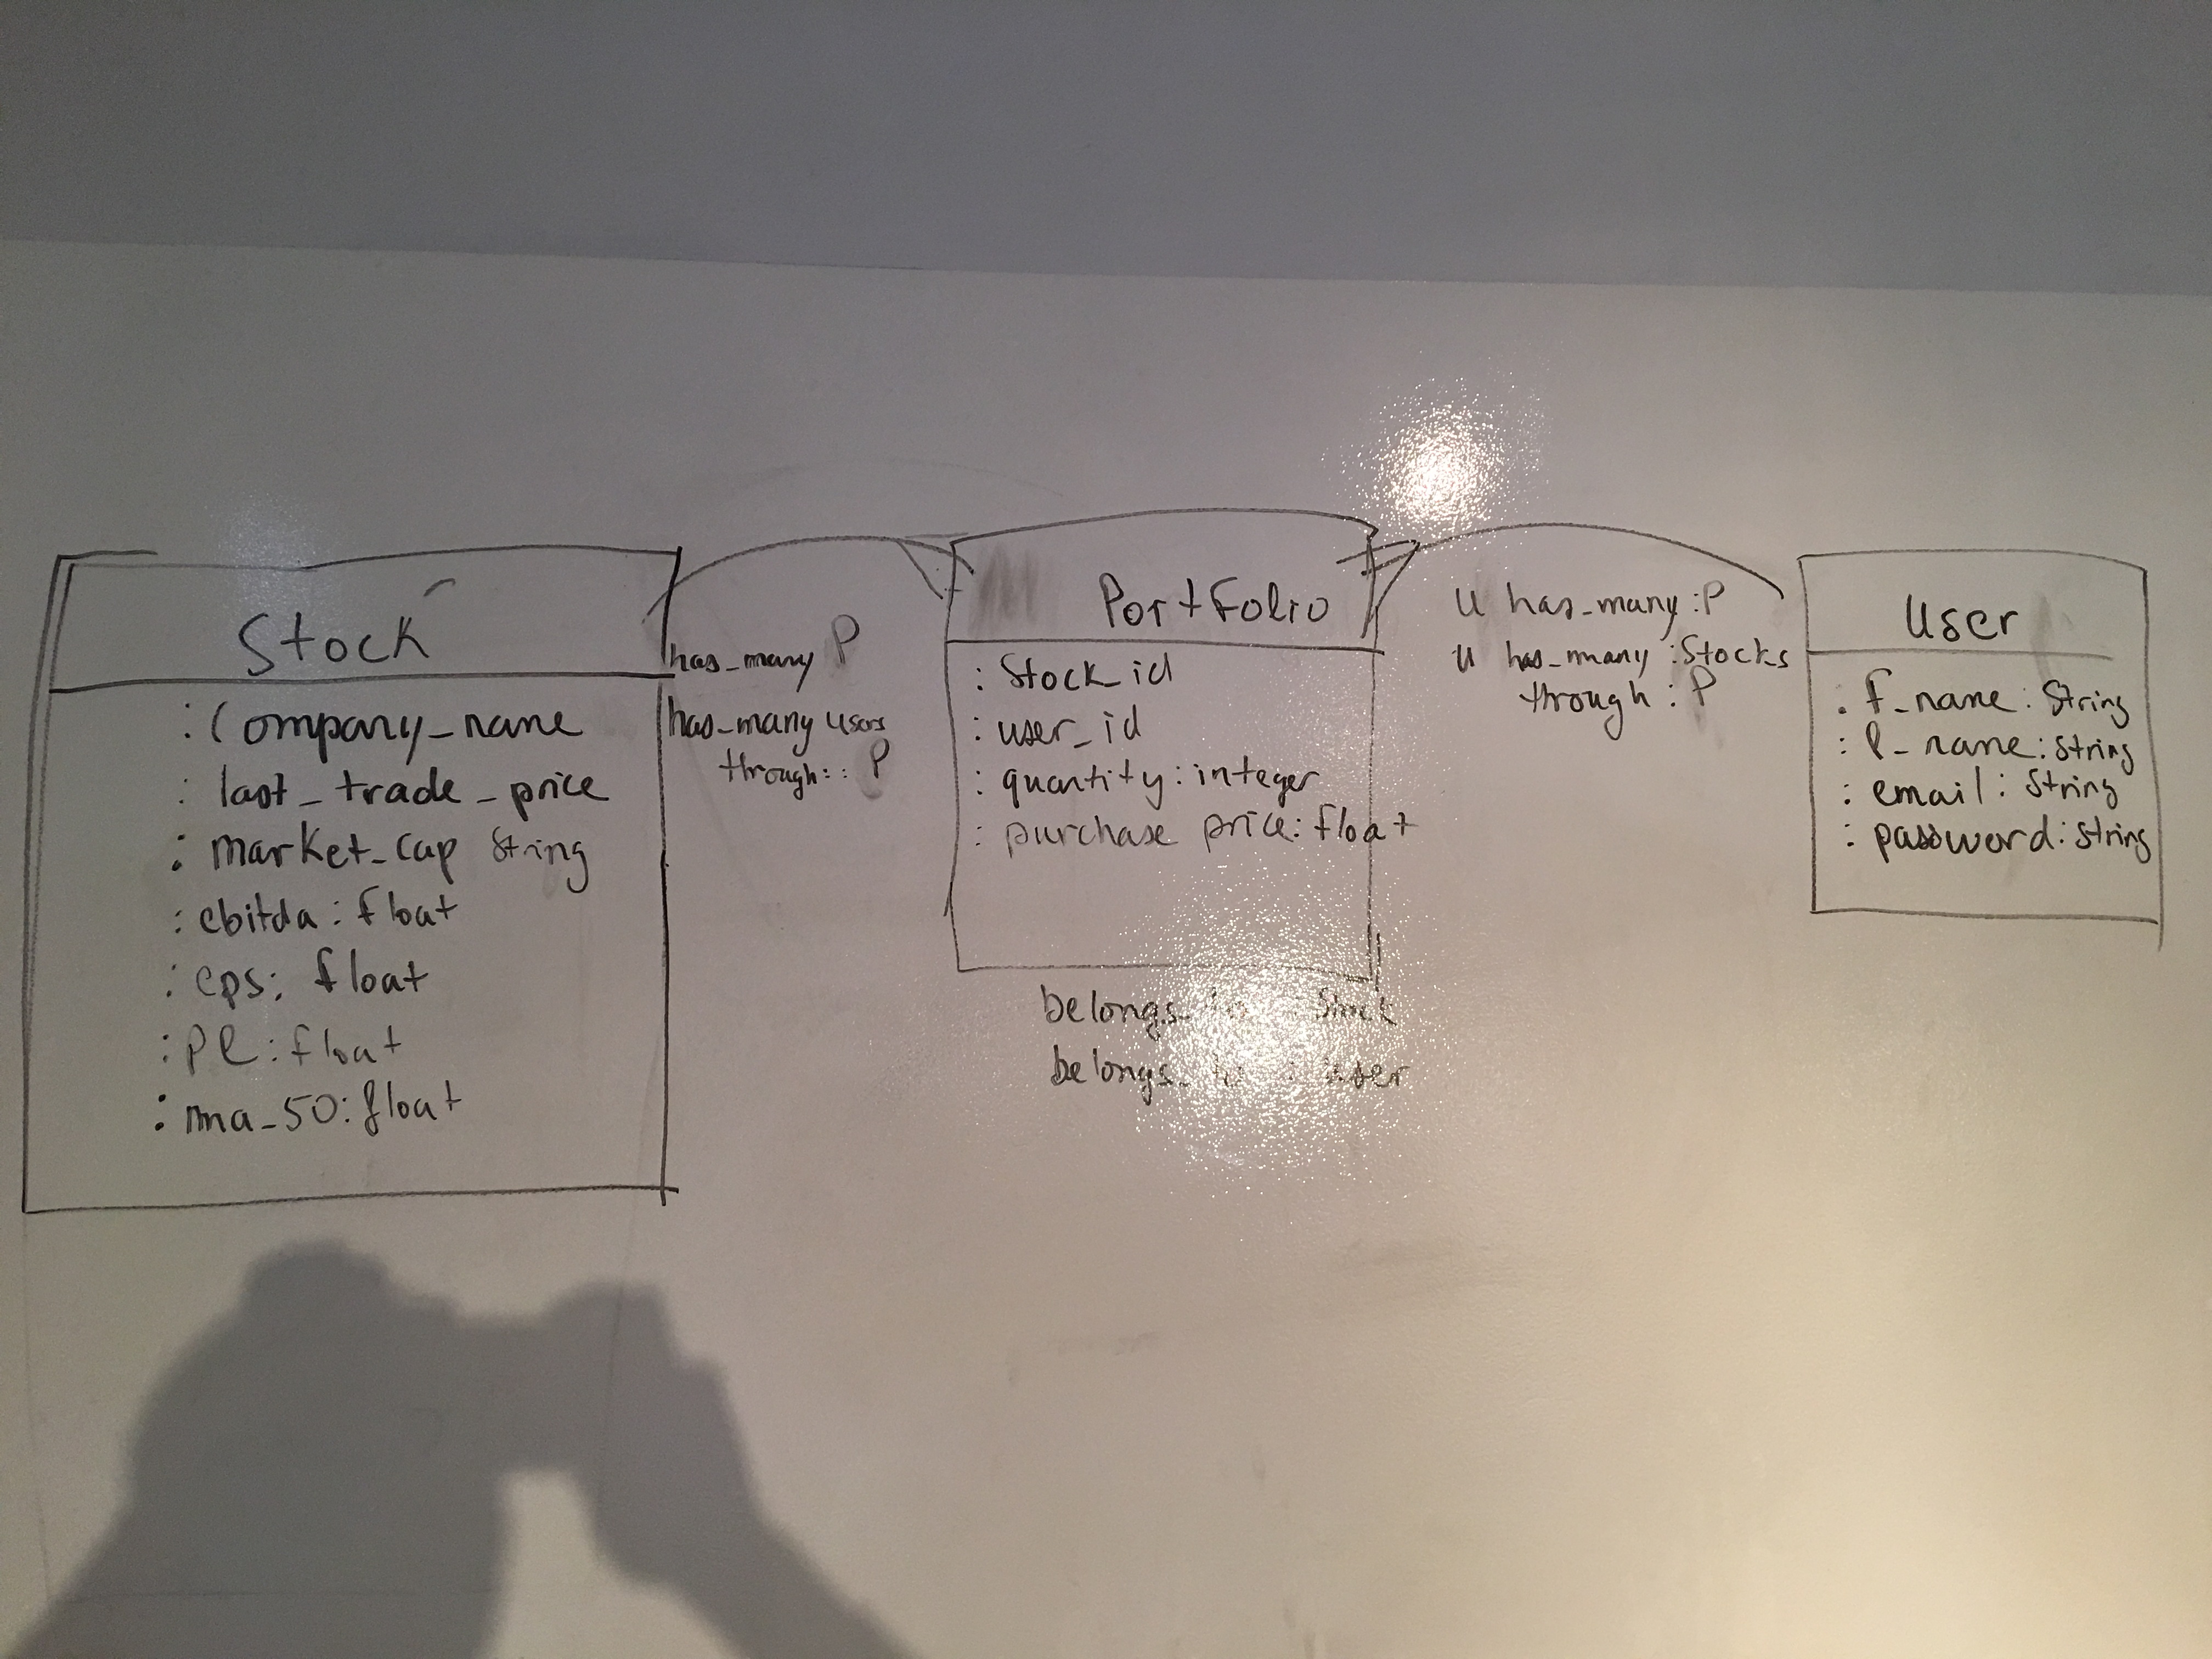 Stock
: Company_name
: last_trade_price
: market_cap String
: ebitda : float
: eps : float
: PE : float
: ma_50 : float
has_many P
has_many users
through:: P
Portfolio
: Stock_id
: user_id
: quantity : integer
: purchase price : float
belongs_to : Stock
belongs_to : user
U has_many :P
U has_many :Stocks
through : P
User
: f_name : String
: l_name : String
: email : String
: password : String